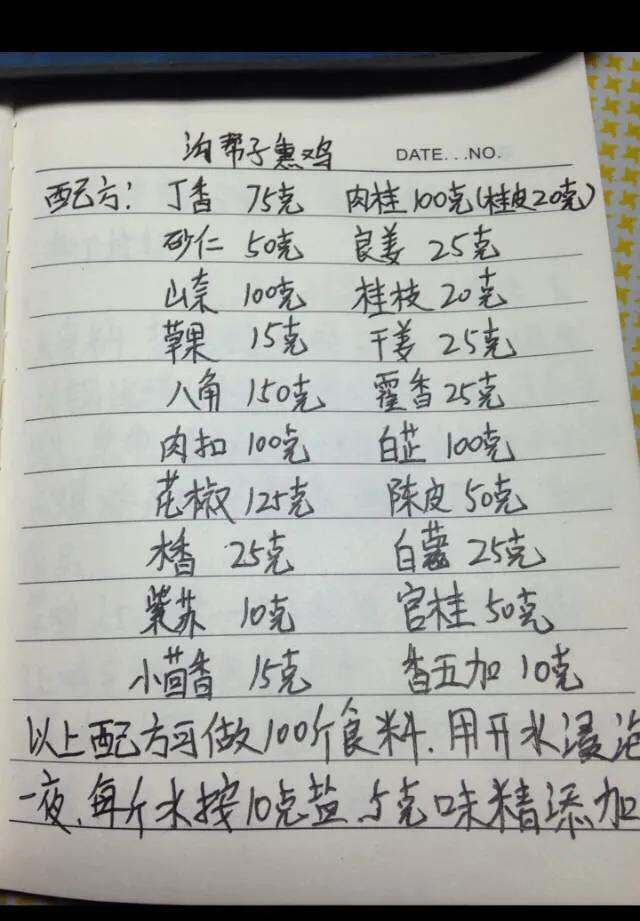 沟帮子熏鸡 DATE...NO.
配方: 丁香 75克 肉桂 100克(桂皮20克)
砂仁 50克 良姜 25克
山奈 100克 桂枝 20克
草果 15克 干姜 25克
八角 150克 霍香 25克
肉扣 100克 白芷 100克
花椒 125克 陈皮 50克
木香 25克 白蔻 25克
紫苏 10克 官桂 50克
小茴香 15克 香五加 10克
以上配方可做100斤食料.用开水浸泡
一夜.每斤水按10克盐.5克味精添加